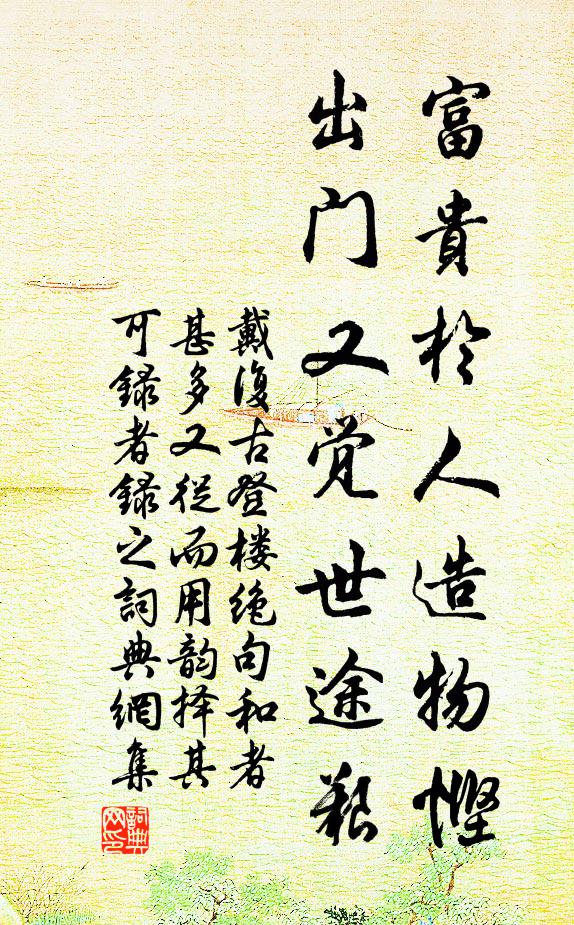 富貴於人造物慳
出門又觉世途艱
戴復古登楼绝句和者
甚多又從而用韵择其
可錄者錄之詞典網集
詞典
网印